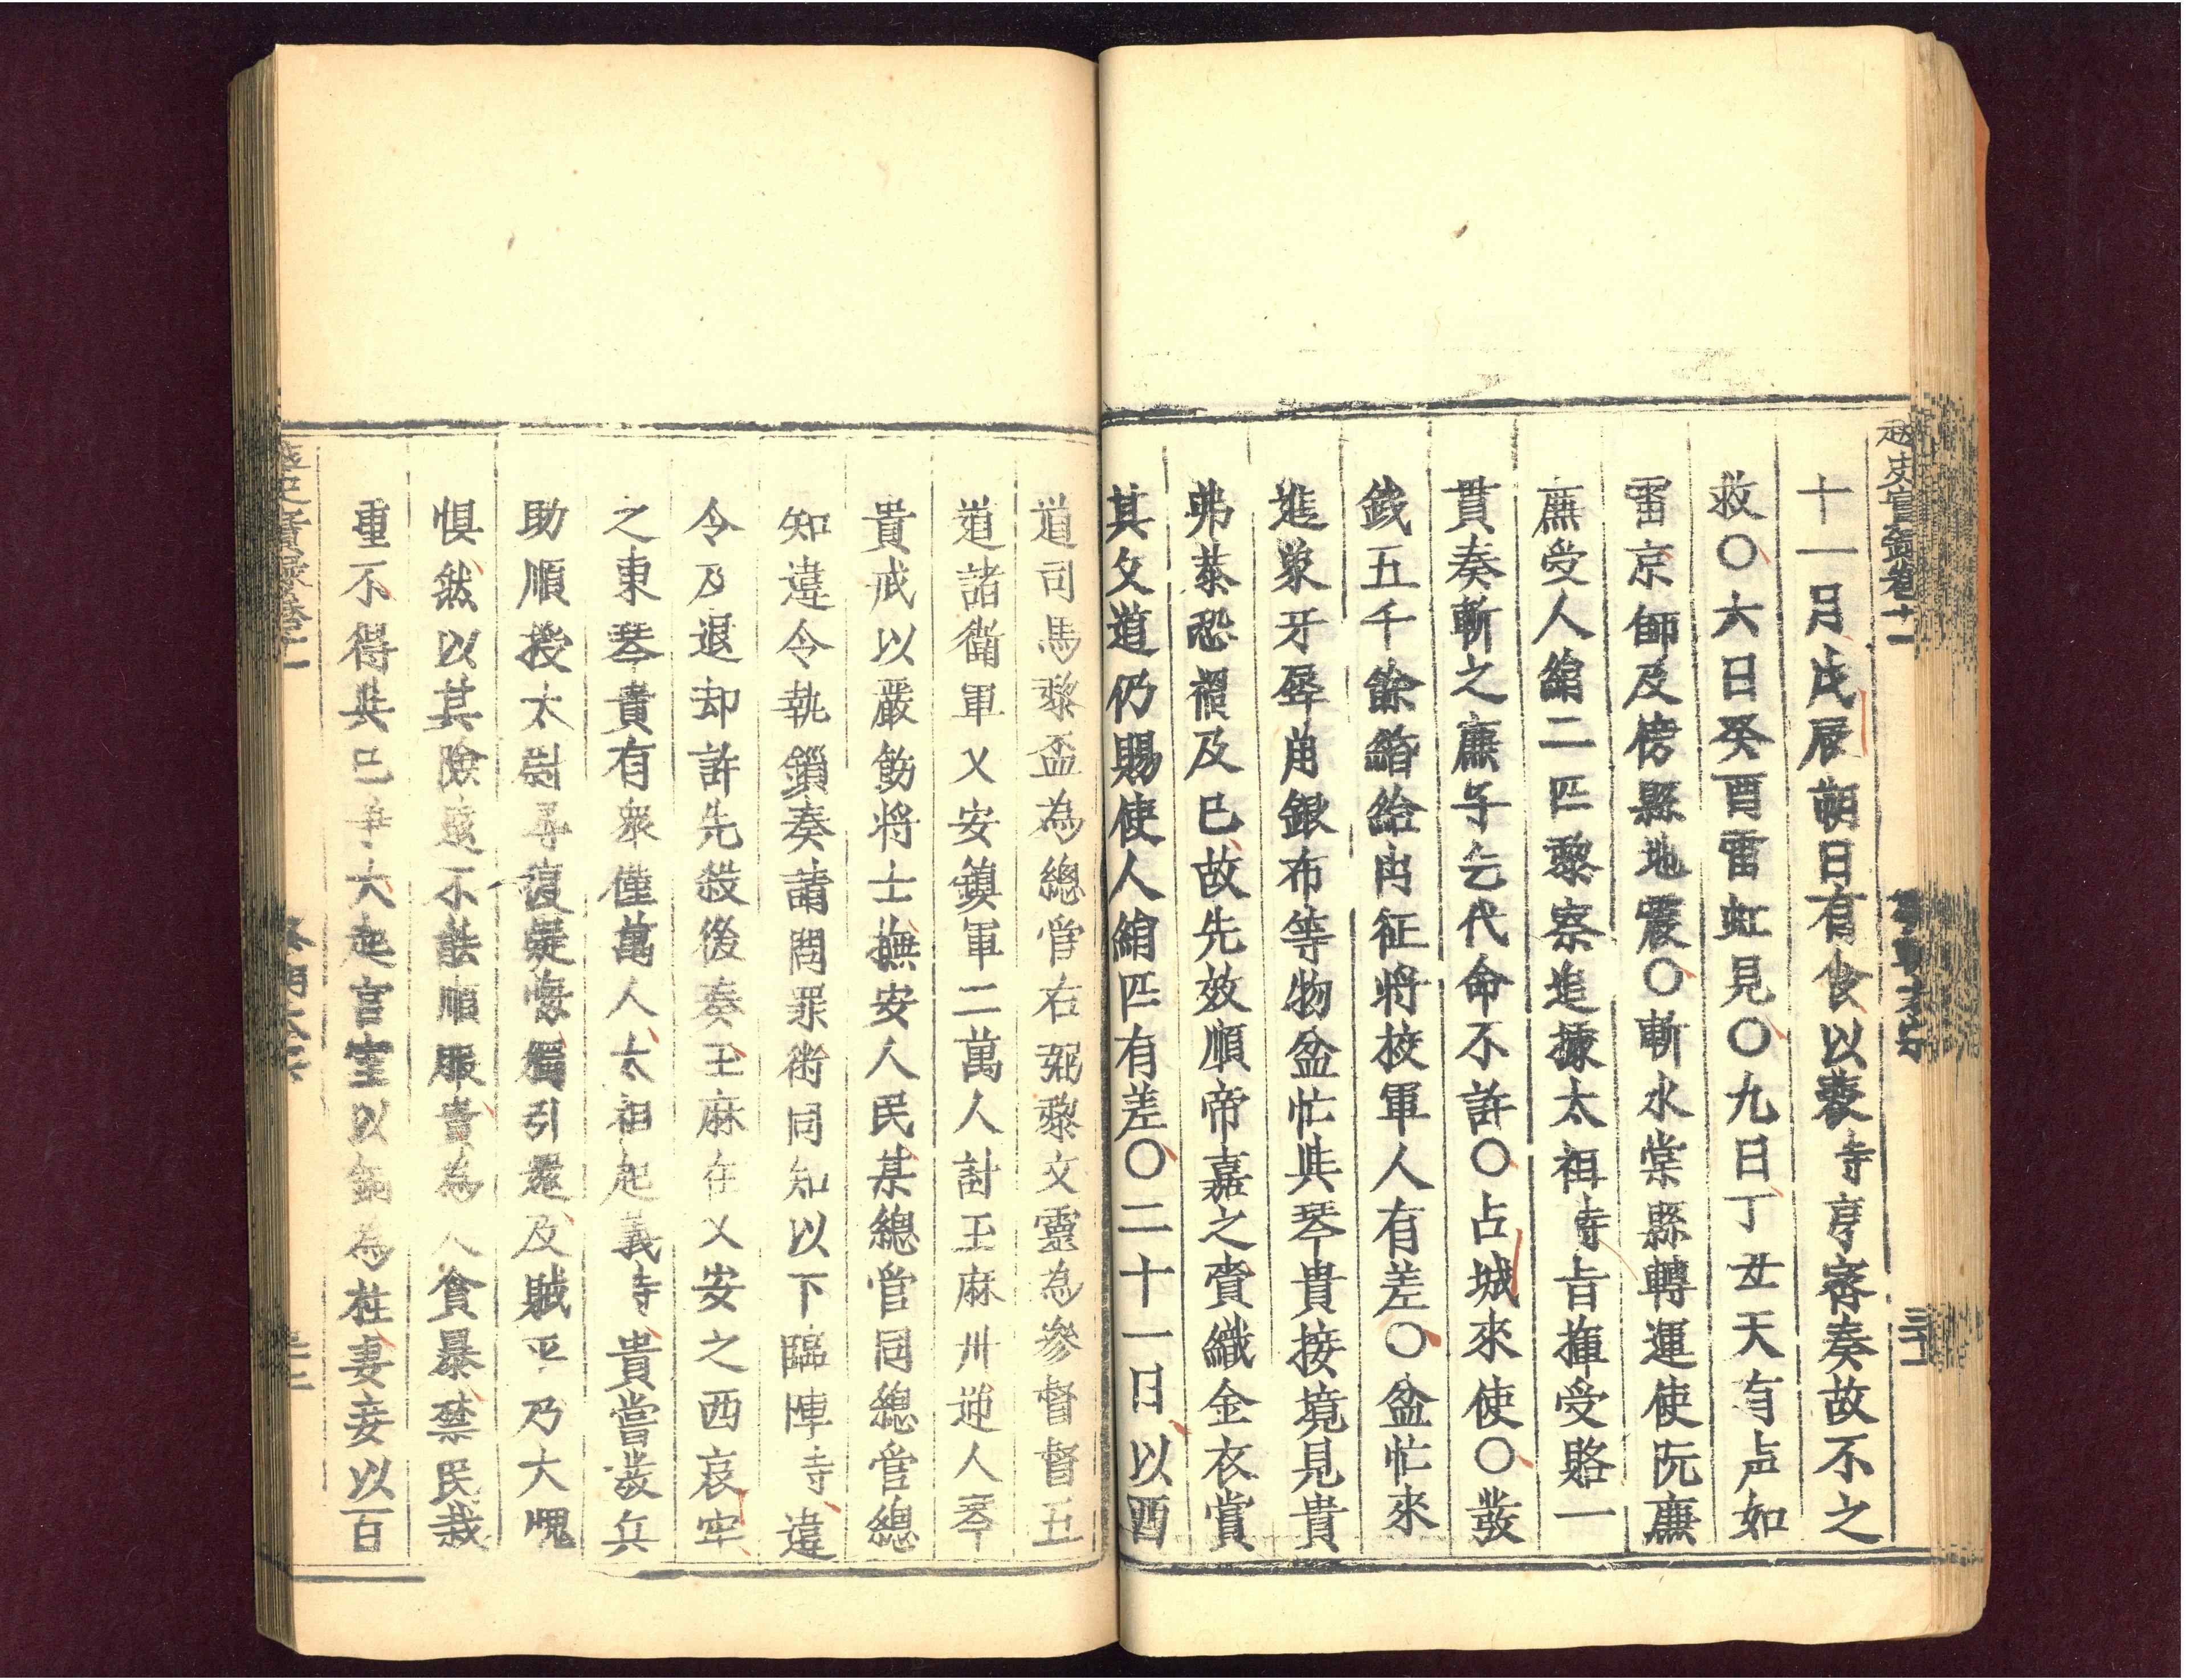 越史實錄卷十一
十一月戊辰朔日有食以養寺亨審奏故不之
救○六日癸酉雷虹見○九日丁丑天有声如
雷京師及傍縣地震○斬水棠縣轉運使阮廉
廉受人絹二匹黎察追據太祖寺旨揮受賂一
貫奏斬之廉子乞代命不許○占城來使○發
錢五千餘緡給內征將校軍人有差○盆忙來
進象牙犀角銀布等物盆忙與琴貴接境見貴
弗恭恐禍及已故先效順帝嘉之賚織金衣賞
其父道仍賜使人絹匹有差○二十一日以酉
道司馬黎盃為總管右弼黎文靈為參督督五
道諸衛軍乂安鎮軍二萬人討玉麻州逆人琴
貴戒以嚴飭将士撫安人民某總管同總管總
知違令執鎖奏請問罪衛同知以下臨陣寺違
令及退却許先殺後奏玉麻在乂安之西哀牢
之東琴貴有衆僅萬人太祖起義寺貴嘗發兵
助順授太尉尋復疑悔獨引還及賊平乃大愧
惧然以其險遠不誅順服貴為人貪暴禁民栽
重不得共已爭大起宮室以銅為柱妻妾以百
越史實錄卷十一